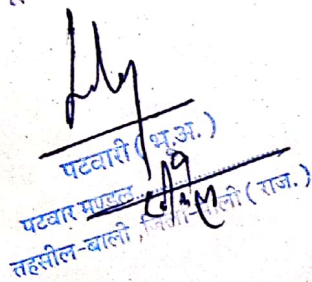 पटवारी (भू.अ.)
पटवार मण्डल..............
तहसील-बाली, जिला-पाली (राज.)